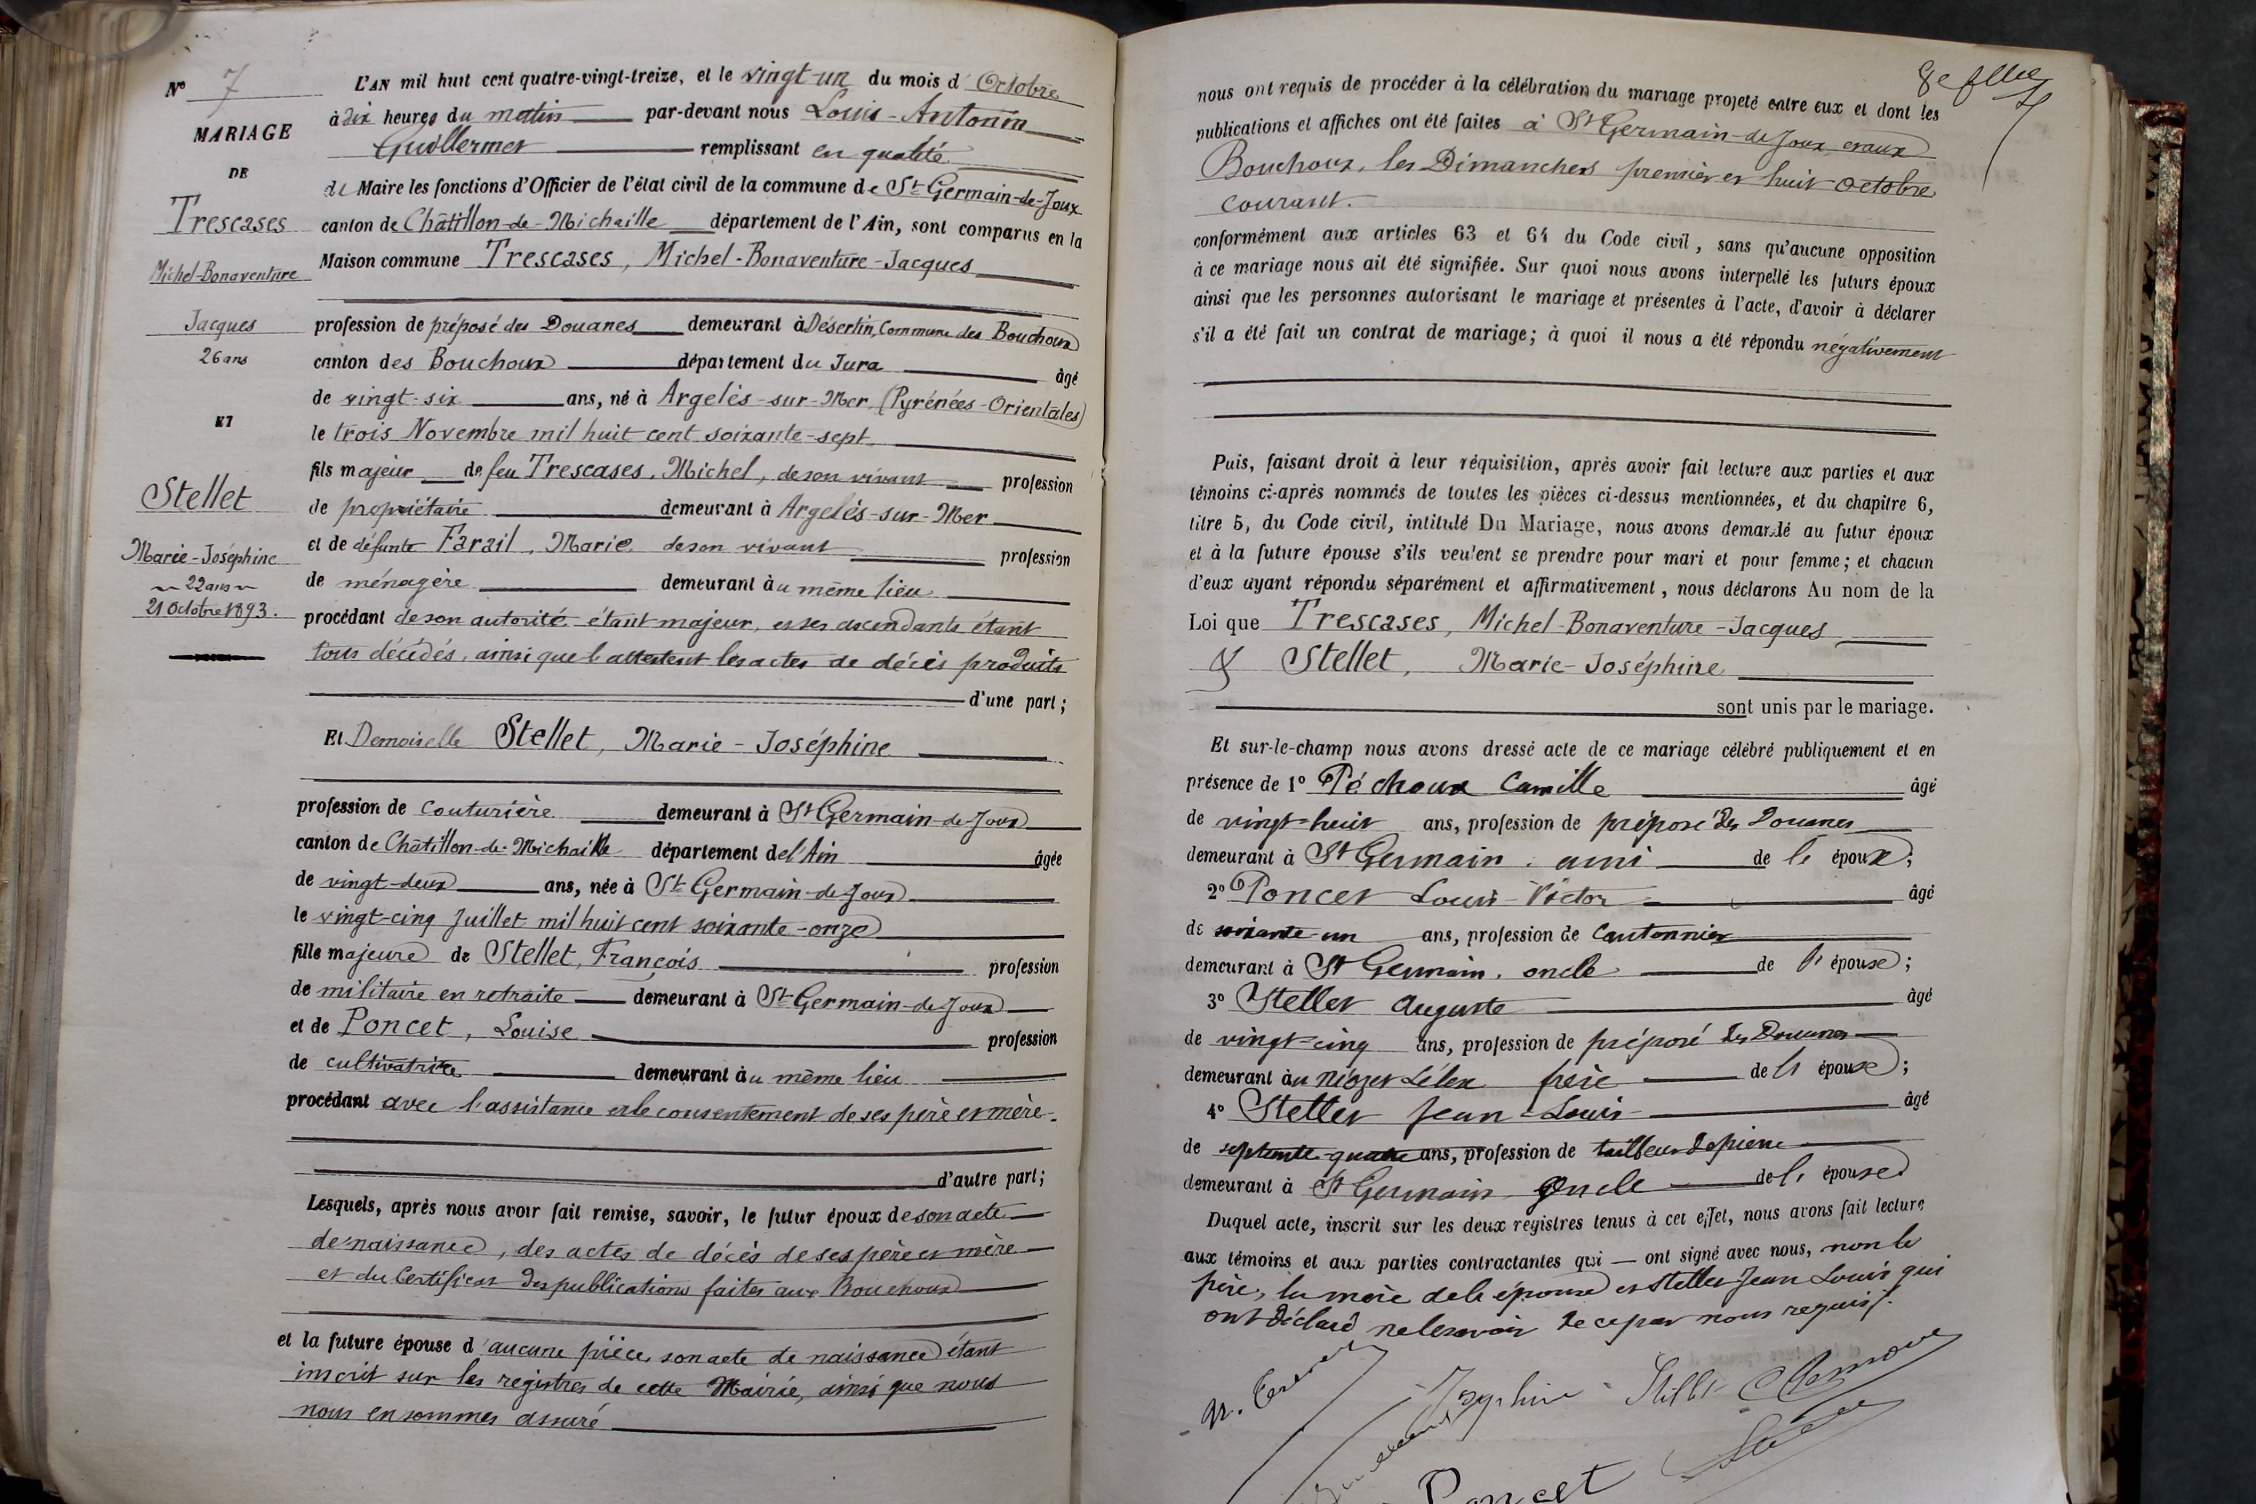 N° 7
MARIAGE
DE
Trescases
Michel-Bonaventure
Jacques
26 ans
ET
Stellet
Marie-Joséphine
22 ans
21 Octobre 1893.
L'AN mil huit cent quatre-vingt-treize, et le vingt-un du mois d'Octobre
à dix heures du matin par-devant nous Louis-Antonin
Guillermet remplissant en qualité
de Maire les fonctions d'Officier de l'état civil de la commune de St Germain-de-Joux
canton de Châtillon-de-Michaille département de l'Ain, sont comparus en la
Maison commune Trescases, Michel-Bonaventure-Jacques
profession de préposé des Douanes demeurant à Désertin, Commune des Bouchoux
canton des Bouchoux département du Jura âgé
de vingt-six ans, né à Argelès-sur-Mer, (Pyrénées-Orientales)
le trois Novembre mil huit cent soixante-sept
fils majeur de feu Trescases, Michel, de son vivant profession
de propriétaire demeurant à Argelès-sur-Mer
et de défunte Farail, Marie, de son vivant profession
de ménagère demeurant au même lieu
procédant de son autorité étant majeur, et ses ascendants étant
tous décédés, ainsi que l'attestent les actes de décès produits
d'une part;
Et Demoiselle Stellet, Marie-Joséphine
profession de couturière demeurant à St Germain-de-Joux
canton de Châtillon-de-Michaille département de l'Ain âgée
de vingt-deux ans, née à St Germain-de-Joux
le vingt-cinq Juillet mil huit cent soixante-onze
fille majeure de Stellet, François profession
de militaire en retraite demeurant à St Germain-de-Joux
et de Poncet, Louise profession
de cultivatrice demeurant au même lieu
procédant avec l'assistance et le consentement de ses père et mère.
d'autre part;
Lesquels, après nous avoir fait remise, savoir, le futur époux de son acte
de naissance, des actes de décès de ses père et mère
et du Certificat des publications faites aux Bouchoux
et la future épouse d'aucune pièce, son acte de naissance étant
inscrit sur les registres de cette Mairie, ainsi que nous
nous en sommes assuré
nous ont requis de procéder à la célébration du mariage projeté entre eux et dont les
publications et affiches ont été faites à St Germain-de-Joux et aux
Bouchoux, les Dimanches premier et huit octobre
courant.
conformément aux articles 63 et 64 du Code civil, sans qu'aucune opposition
à ce mariage nous ait été signifiée. Sur quoi nous avons interpellé les futurs époux
ainsi que les personnes autorisant le mariage et présentes à l'acte, d'avoir à déclarer
s'il a été fait un contrat de mariage; à quoi il nous a été répondu négativement
Puis, faisant droit à leur réquisition, après avoir fait lecture aux parties et aux
témoins ci-après nommés de toutes les pièces ci-dessus mentionnées, et du chapitre 6,
titre 5, du Code civil, intitulé Du Mariage, nous avons demandé au futur époux
et à la future épouse s'ils veulent se prendre pour mari et pour femme; et chacun
d'eux ayant répondu séparément et affirmativement, nous déclarons Au nom de la
Loi que Trescases, Michel-Bonaventure-Jacques
& Stellet, Marie-Joséphine
sont unis par le mariage.
Et sur-le-champ nous avons dressé acte de ce mariage célébré publiquement et en
présence de 1° Péchoux Camille âgé
de vingt-huit ans, profession de préposé des Douanes
demeurant à St Germain, ami de l' époux;
2° Poncet Louis-Victor âgé
de soixante-un ans, profession de Cantonnier
demeurant à St Germain, oncle de l'épouse;
3° Stellet Auguste âgé
de vingt-cinq ans, profession de préposé des Douanes
demeurant au frère de l' épouse;
4° Stellet Jean-Louis âgé
de septante-quatre ans, profession de tailleur de pierre
demeurant à St Germain oncle de l' épouse
Duquel acte, inscrit sur les deux registres tenus à cet effet, nous avons fait lecture
aux témoins et aux parties contractantes qui ont signé avec nous, non le
père, la mère de l'épouse et Stellet Jean Louis qui
ont déclaré ne le savoir de ce par nous requis.
Joséphine Stellet
Poncet